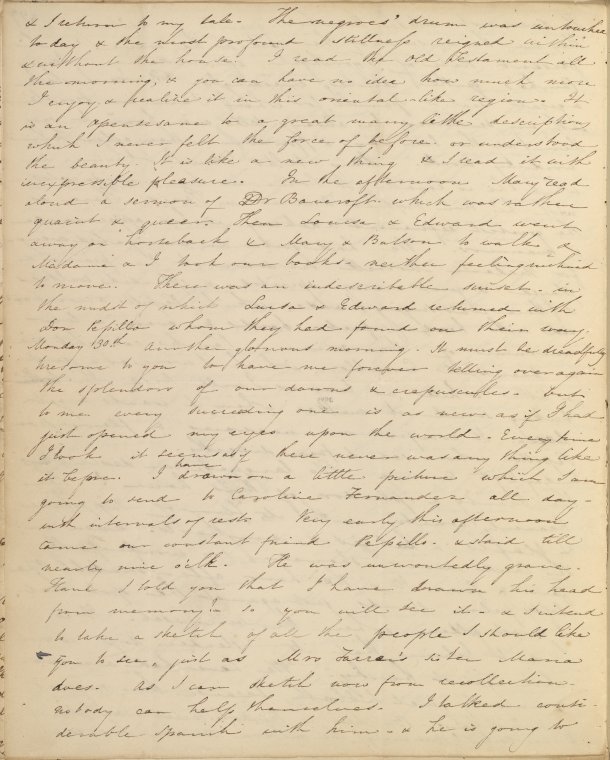 & I return to my tale. The negroes' drum was untouched
today & the most profound stillness reigned within
& without the house. I read the Old Testament all
the morning, & you can have no idea how much more
I enjoy & realize it in this oriental-like region. It
is an open sesame to a great many little descriptions
which I never felt the force of before or understood
the beauty. It is like a new thing & I read it with
inexpressible pleasure. In the afternoon Mary read
aloud a sermon of Dr Bancroft which was rather
quaint & queer. Then Louisa & Edward went
away on horseback & Mary & Batson to walk &
Madame & I took our books neither feeling inclined
to move. There was an indescribable sunset. in
the midst of which Luisa & Edward returned with
Don Pepillo whom they had found on their way.
Monday 30th Another glorious morning. It must be dreadfully
tiresome to you to have me forever telling over again
the splendour of our dawns & crepuscules. but
to me every succeeding one is as new as if I had
just opened my eyes upon the world. Every time
I look it seems as if there never was anything like
it before. I have drawn on a little picture which I am
going to send to Caroline Fernandez all day-
with intervals of rest. Very early this afternoon
came our constant friend Pepillo. & staid till
nearly nine o'clk. He was unwontedly grave.
Have I told you that I have drawn his head
from memory? so you will see it. & I intend
to take a sketch of all the people I should like
you to see, just as Mrs sister Maria
does. As I can sketch now from recollection
nobody can help themselves. I talked consi-
derable Spanish with him. & he is going to